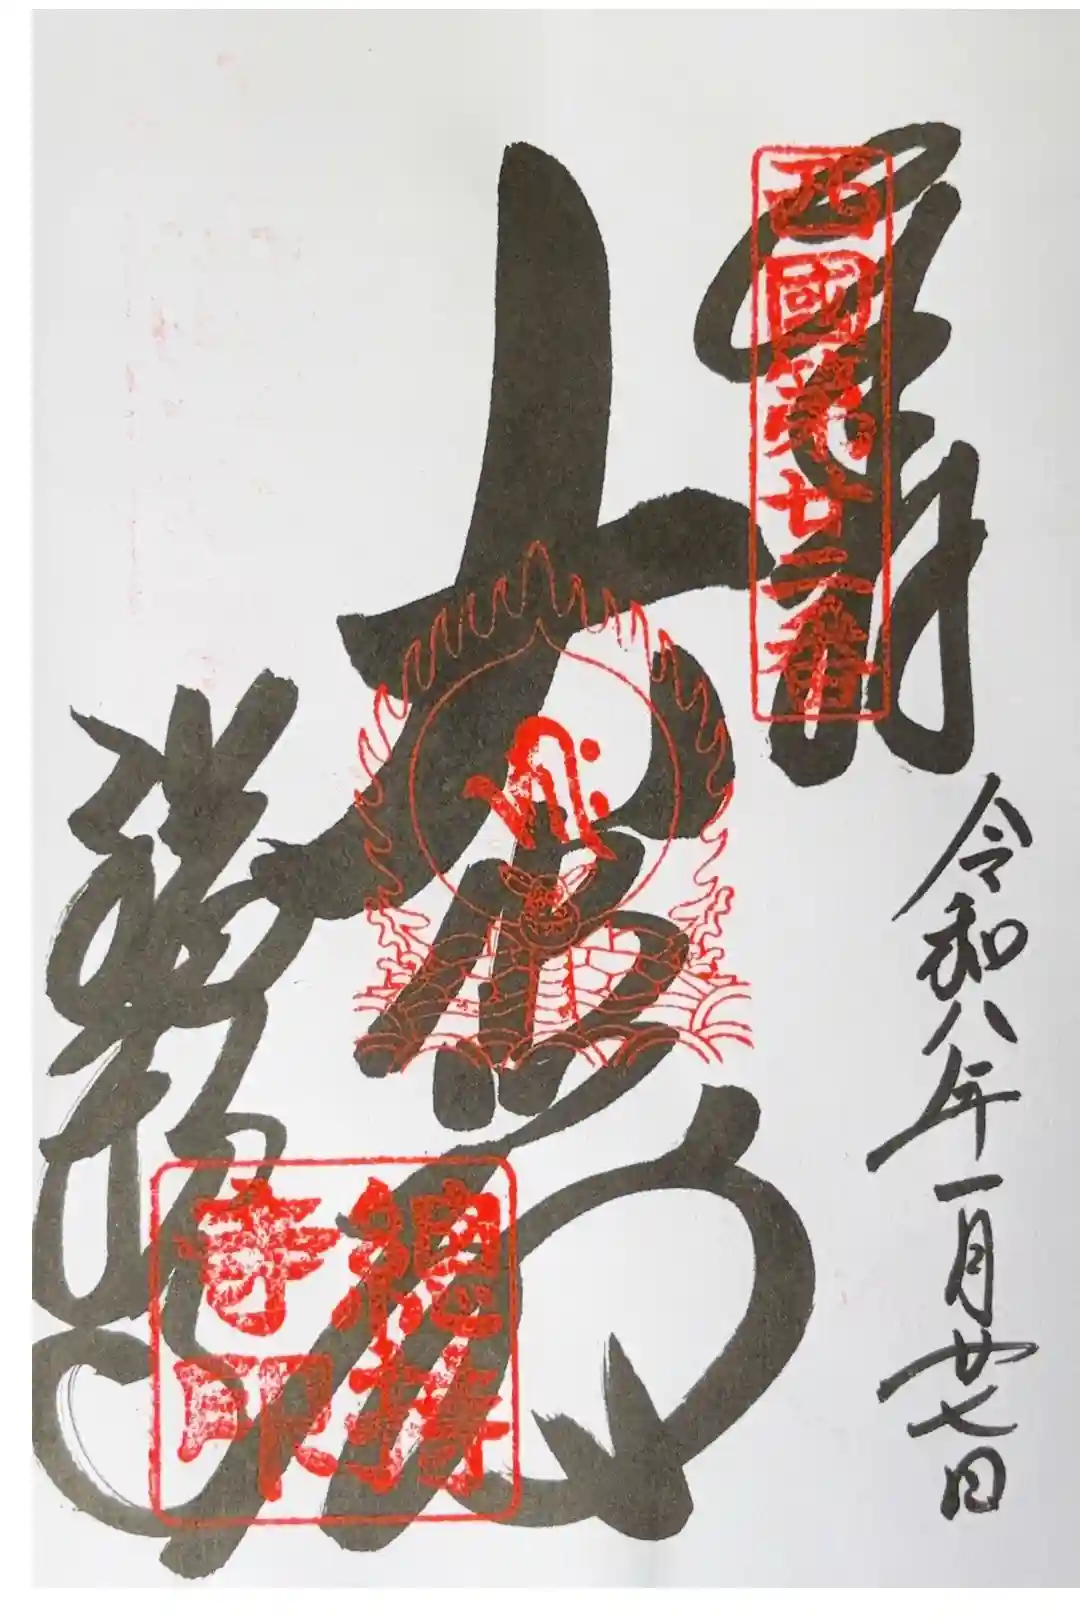 奉拝
西國第廿二番
令和八年一月廿七日
大悲閣
総持寺
總持
寺印